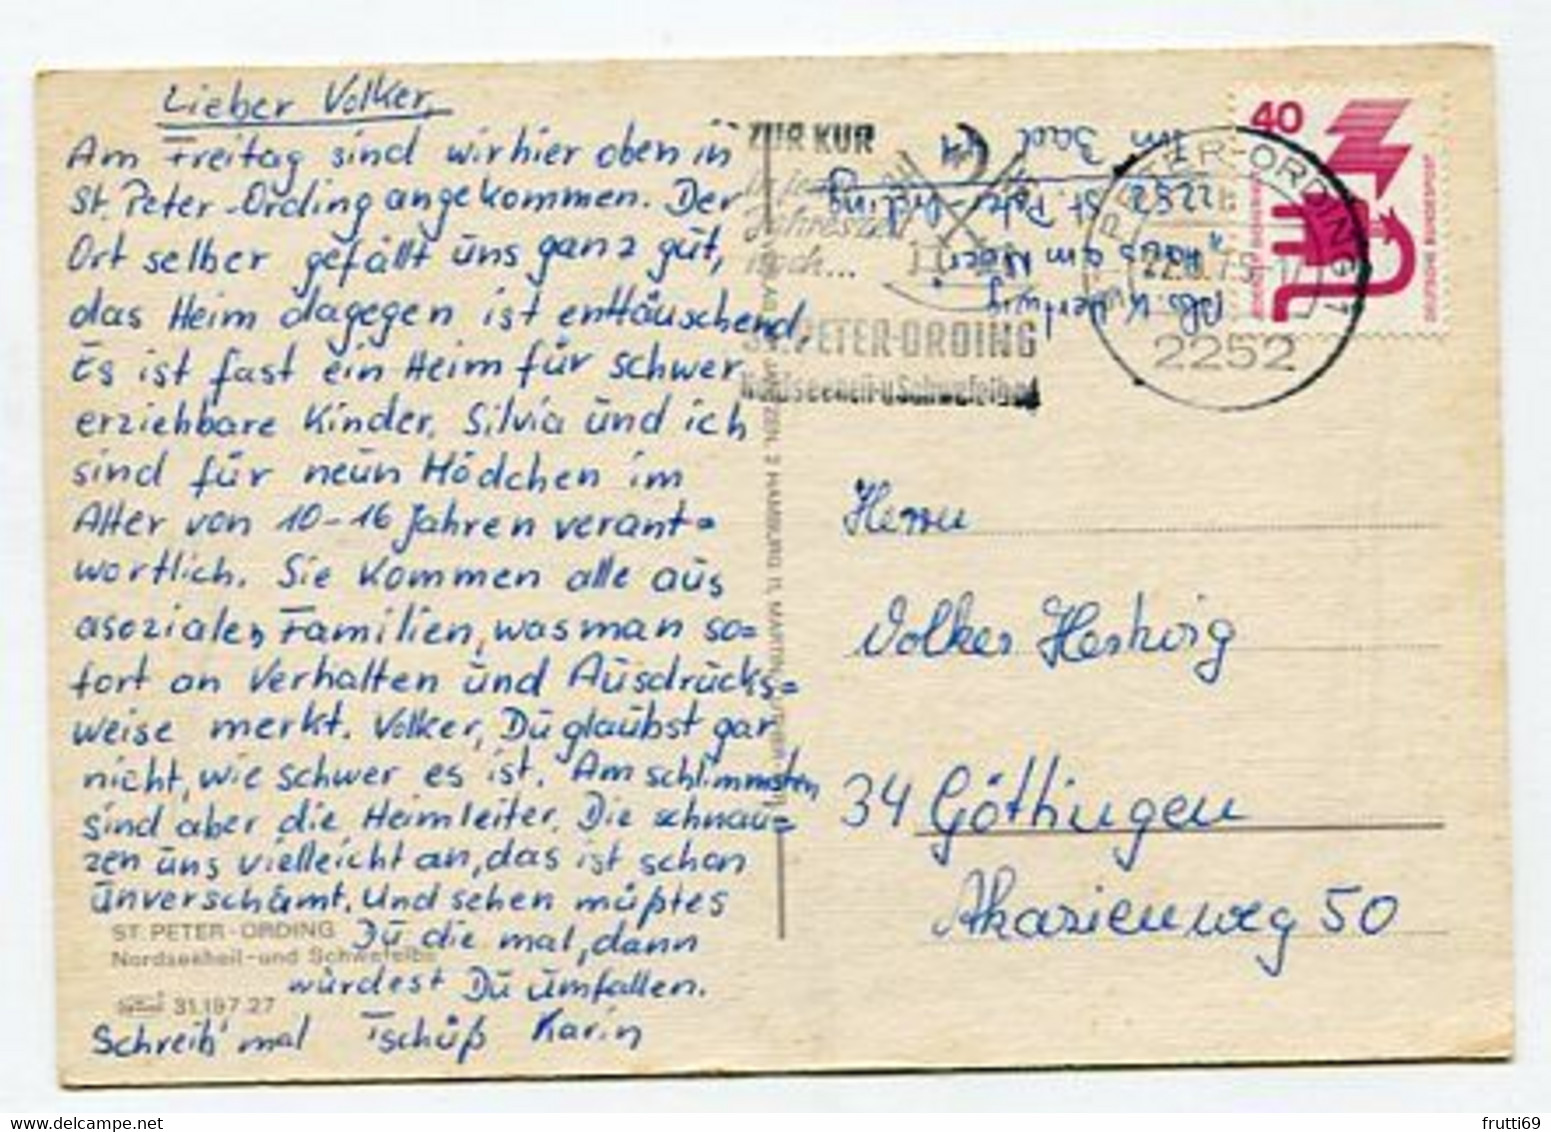 Lieber Volker,
Am Freitag sind wir hier oben in
St. Peter-Ording angekommen. Der
Ort selber gefällt uns ganz gut,
das Heim dagegen ist enttäuschend.
Es ist fast ein Heim für schwer
erziehbare Kinder. Silvia und ich
sind für neun Mädchen im
Alter von 10-16 Jahren verant=
wortlich. Sie kommen alle aus
asozialen Familien, was man so=
fort an Verhalten und Ausdrucks=
weise merkt. Volker, Du glaubst gar
nicht, wie schwer es ist. Am schlimmsten
sind aber die Heimleiter. Die schnau=
zen uns vielleicht an, das ist schon
unverschämt. Und sehen müßtes
Du die mal, dann
würdest Du umfallen.
Schreib' mal Tschüß Karin
ST. PETER-ORDING
Nordseeheil- und Schwefelb
31.197 27
ZUR KUR
noch...
ST. PETER-ORDING
Nordseeheil-u Schwefelbad
2252
40
DEUTSCHE BUNDESPOST
Abs. K. Hertwig
"Haus am Meer"
2252 St. Peter-Ording
Im Bad
Herrn
Volker Hertwig
34 Göttingen
Akazienweg 50
2 HAMBURG 11, MARTIN-LUTHER
frutti69